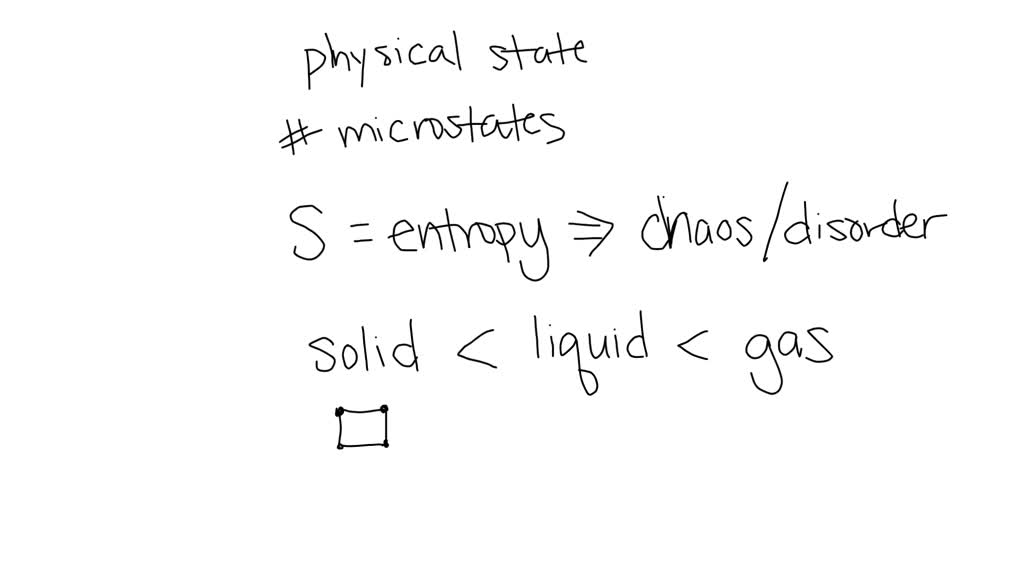 physical state
# microstates
S = entropy ⇒ chaos/disorder
solid < liquid < gas